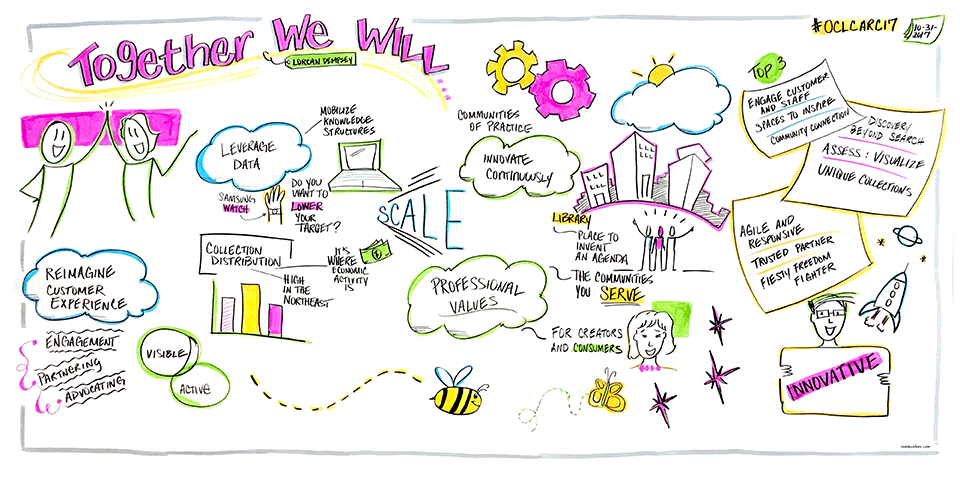 Together We Will
LORCAN DEMPSEY
#OCLCARC17
10-31-
2017
LEVERAGE
DATA
MOBILIZE
KNOWLEDGE
STRUCTURES
SAMSUNG
WATCH
DO YOU
WANT TO
LOWER
YOUR
TARGET?
SCALE
COLLECTION
DISTRIBUTION
HIGH
IN THE
NORTHEAST
IT'S
WHERE
ECONOMIC
ACTIVITY
IS
REIMAGINE
CUSTOMER
EXPERIENCE
ENGAGEMENT
PARTNERING
ADVOCATING
VISIBLE
ACTIVE
COMMUNITIES
OF PRACTICE
INNOVATE
CONTINUOUSLY
LIBRARY
PLACE TO
INVENT
AN AGENDA
PROFESSIONAL
VALUES
THE COMMUNITIES
YOU SERVE
FOR CREATORS
AND CONSUMERS
TOP 3
ENGAGE CUSTOMER
AND STAFF
SPACES TO INSPIRE
COMMUNITY CONNECTION
DISCOVER/
BEYOND SEARCH
ASSESS: VISUALIZE
UNIQUE COLLECTIONS
AGILE AND
RESPONSIVE
TRUSTED PARTNER
FIESTY FREEDOM
FIGHTER
INNOVATIVE